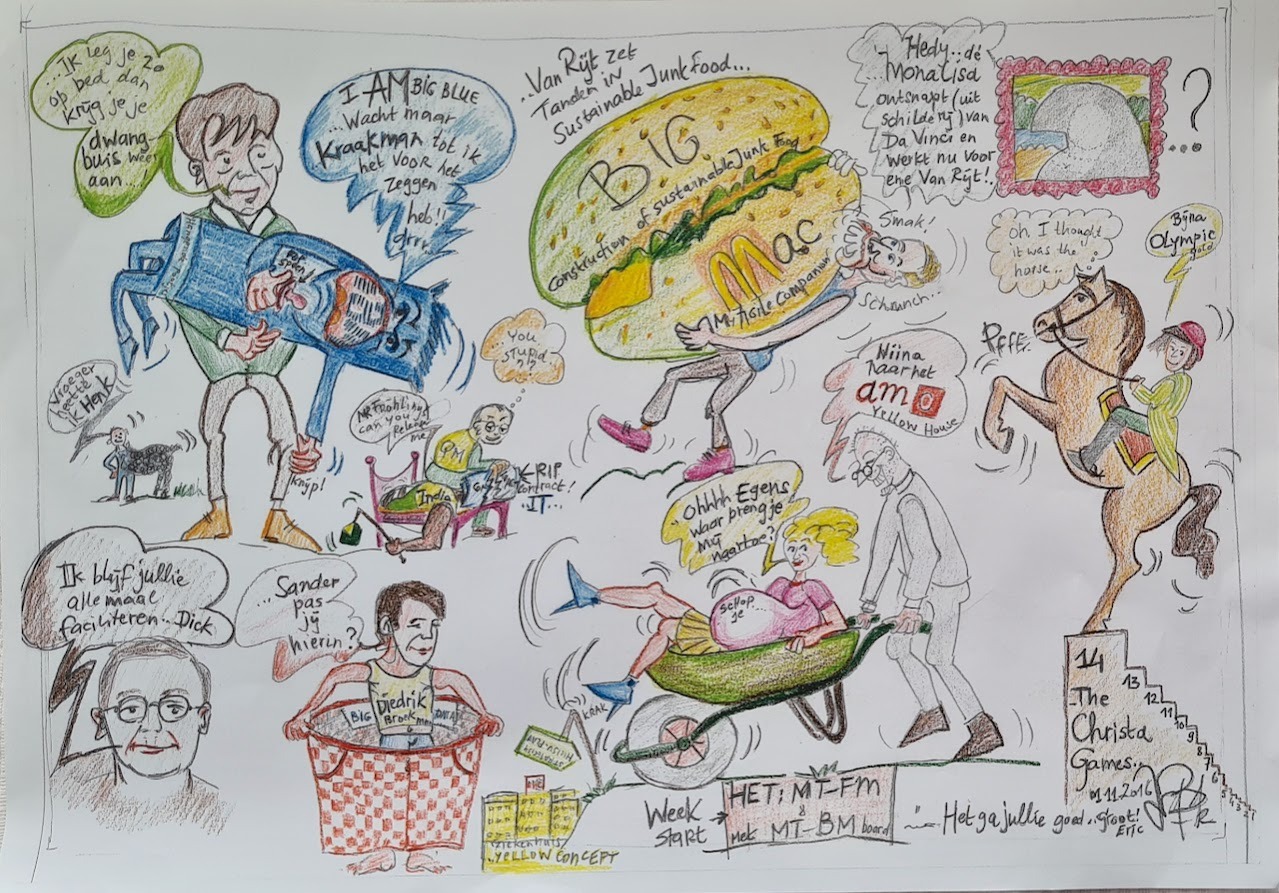 ...Ik leg je zo
op bed, dan
krijg je je
dwang
buis weer
aan...!
I AM BIG BLUE
...Wacht maar
Kraakman tot ik
het voor het
zeggen
heb!!
grrr..
..Van Rijt zet
Tanden in
Sustainable Junkfood...
BIG
construction of sustainable Junk Food
Mac
My Agile Companion
Smak!
Schrunch...
Hedy..: dé
Monalisa
ontsnapt (uit
schilderij) van
Da Vinci en
werkt nu voor
ene Van Rijt!.
?
...
oh, I thought
it was the
horse..
Bijna
Olympic
gold
Pffff..
Vroeger
heette
ik Henk
Knijp!
...You
stupid
??
Mr Frühling
can you
Release
me
PM
India
RIP
Contract!
IT...
Niina
naar het
amo
Yellow House
..Ohhhh Egens
waar breng je
mij
naartoe?
schop..
je
Ik blijf jullie
allemaal
faciliteren.. Dick
...Sander
pas
jij
hierin?
Diedrik
Broekman
BIG
KRAK
Ziekenhuis
..Yellow Concept
Week
Start
HET: MT-FM
&
Het MT-BM board
14
13
12
11
10
9
8
7
6
..The
Christa
Games..
01.11.2016
Het ga jullie goed..groot!
Eric